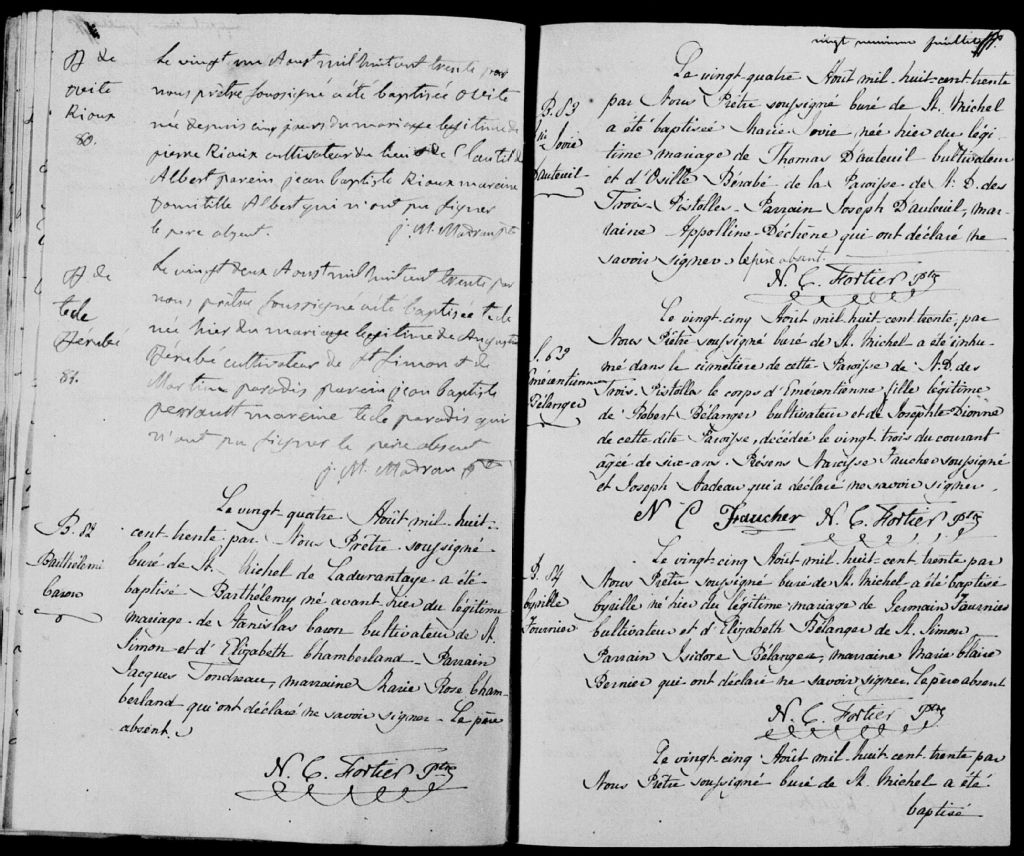 B de
ovite
Rioux
80.
Le vingt un Aoust mil huit cent trente par
nous prêtre soussigné a ete baptisée ovite
née depuis cinq jours du mariage legitime de
pierre Rioux cultivateur du lieu et de
Albert parein jean baptiste Rioux mareine
Domitille Albert qui n'ont pu signer
le pere absent.
j. M. Madran ptr
B de
tecle
Bérubé
81.
Le vingt deux Aoust mil huit cent trente par
nous prêtre soussigné a ete baptisée tecle
née hier du mariage legitime de Augustin
Bérubé cultivateur de St Simon et de
Martine paradis parein jean baptiste
perrault mareine tecle paradis qui
n'ont pu signer le père absent
j. M. Madran ptr
B. 82
Barthélémi
Caron
Le vingt-quatre Août mil-huit-
cent-trente par Nous Prêtre soussigné
Curé de St. Michel de Ladurantaye a été
baptisé Barthélemy né avant-hier du légitime
mariage de Stanislas Caron Cultivateur de St.
Simon et d'Elizabeth Chamberland - Parrain
Jacques Tondreau, marraine Marie Rose Cham-
berland qui ont déclaré ne savoir signer - Le père
absent.
N. C. Fortier Ptre
vingt neuvieme juillet
B. 83
Mie Jovie
Dauteuil
Le vingt-quatre Août mil-huit-cent-trente
par Nous Prêtre soussigné Curé de St. Michel
a été baptisée Marie Jovie, née hier du légi-
time mariage de Thomas Dauteuil Cultivateur
et d'Osille Berubé de la Paroisse de N. D. des
Trois-Pistolles - Parrain Joseph Dauteuil, mar-
raine Appolline Dechêne qui ont déclaré ne
savoir signer le père absent.
N. C. Fortier Ptre
S. 69
Émérentienne
Bélanger
Le vingt-cinq Août mil-huit-cent trente, par
Nous Prêtre soussigné Curé de St. Michel a été inhu-
mé dans le cimetière de cette Paroisse de N. D. des
Trois-Pistolles le corps d'Émérentienne fille légitime
de Robert Bélanger Cultivateur et de Josephte Dionne
de cette dite Paroisse, décédée le vingt trois du courant
âgée de six ans. Présens Narcisse Faucher soussigné
et Joseph Nadeau qui a déclaré ne savoir signer.
N C Faucher N. C. Fortier Ptre
B. 84
Cyrille
Fournier
Le vingt-cinq Août mil-huit-cent trente par
Nous Prêtre soussigné Curé de St. Michel a été baptisé
Cyrille né hier du légitime mariage de Germain Fournier
Cultivateur et d'Elizabeth Bélanger de St. Simon
Parrain Isidore Bélanger, marraine Marie Claire
Bernier qui ont déclaré ne savoir signer. Le père absent
N. C. Fortier Ptre
Le vingt-cinq Août mil-huit-cent trente par
Nous Prêtre soussigné Curé de St. Michel a été
baptisé